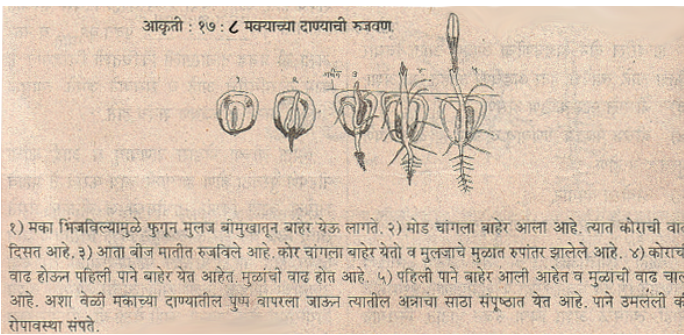 आकृती : १७ : ८ मक्याच्या दाण्याची रुजवण
१) मका भिजविल्यामुळे फुगून मुलज बीमुखातून बाहेर येऊ लागते. २) मोड चांगला बाहेर आला आहे. त्यात कोराची वाढ
दिसत आहे. ३) आता बीज मातीत रुजविले आहे. कोर चांगला बाहेर येतो व मुलजाचे मुळात रुपांतर झालेले आहे. ४) कोराची
वाढ होऊन पहिली पाने बाहेर येत आहेत. मुळांची वाढ होत आहे. ५) पहिली पाने बाहेर आली आहेत व मुळाची वाढ चालू
आहे. अशा वेळी मकाच्या दाण्यातील पुष्प वापरला जाऊन त्यातील अन्नाचा साठा संपूष्ठात येत आहे. पाने उमलली की
रोपावस्था संपते.